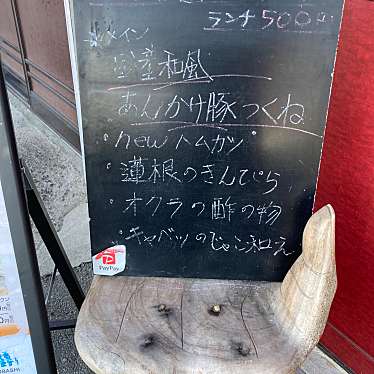 ランチ500円
メイン
国産和風
あんかけ豚つくね
・newトムカツ
・蓮根のきんぴら
・オクラの酢の物
・キャベツのじゃこ和え
PayPay